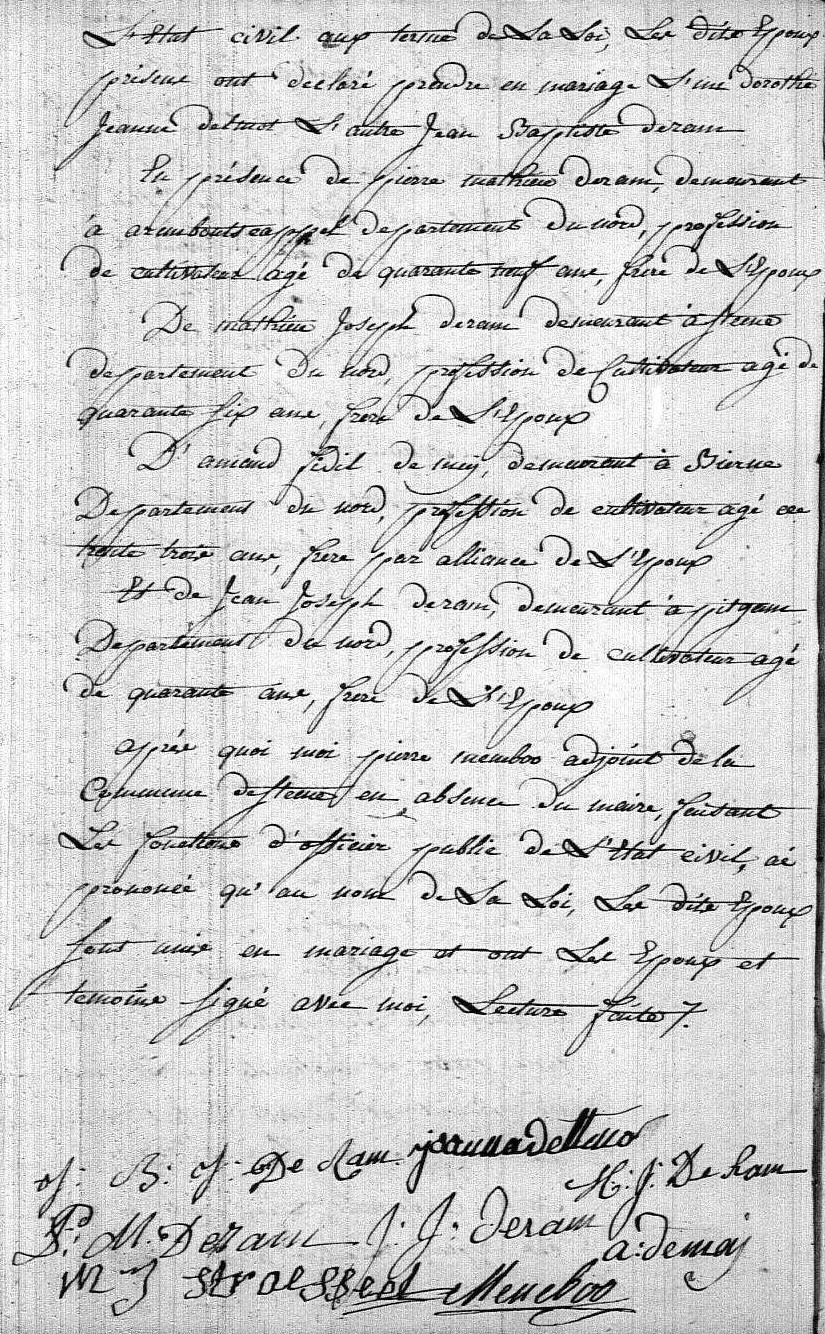 L'Etat civil aux terme de La Loi, Les dits Epoux
présens ont declaré prendre en mariage L'une dorothé
Jeanne delmot L'autre Jean Baptiste deram
En présence de pierre mathieu deram, demeurant
à armboutscappel departement du nord, profession
de cultivateur agé de quarante neuf ans, frere de L'Epoux
De mathieu Joseph deram demeurant à steene
departement du nord, profession de Cultivateur agé de
quarante six ans, frere de L'Epoux
D'amand fidil de mey, demeurant à Bierne
Departement du nord, profession de cultivateur agé de
trente trois ans, frere par alliance de L'Epoux
Et de Jean Joseph deram, demeurant à pitgam
Departement du nord, profession de cultivateur agé
de quarante ans, frere de L'Epoux
après quoi moi pierre meneboo adjoint de la
Commune de steene en absence du maire, faisant
Les fonctions d'officier public de L'Etat civil, ai
prononcé qu'au nom de La Loi, Les dits Epoux
sont unis en mariage et ont Les Epoux et
temoins signé avec moi, Lecture faite 7.
J: B: J: De Ram
M: J: De Ram
P: M: Deram J: J: deram
a: demeij
M J Straesseel Meneboo